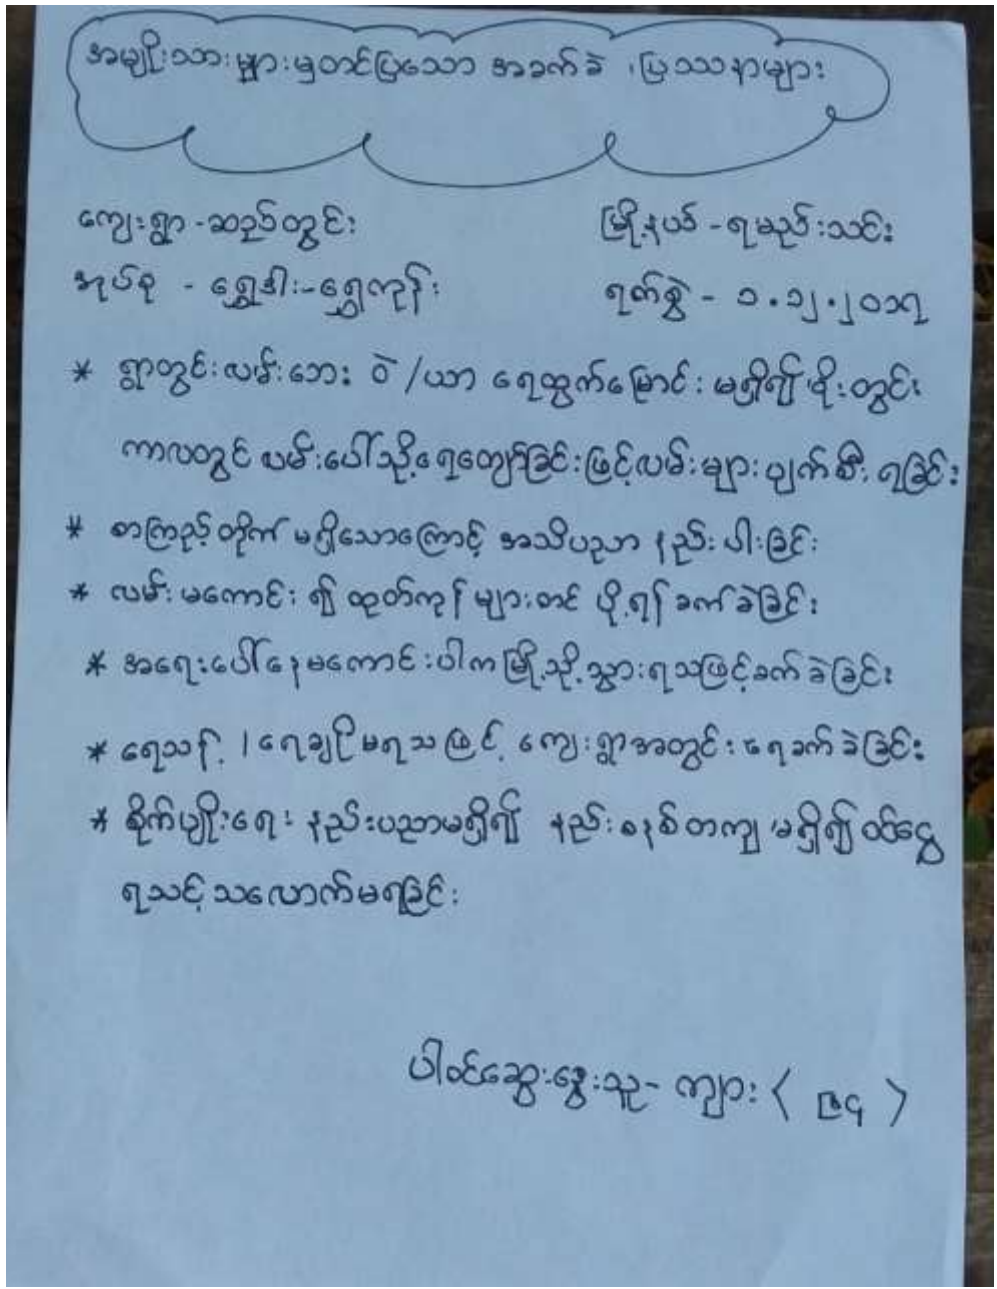 အမျိုးသားများမှတင်ပြသော အခက်ခဲ ၊ပြဿနာများ
ကျေးရွာ -ဆည်တွင်း
မြို့နယ် -ရမည်းသင်း
အုပ်စု - ရွှေဒါး-ရွှေကုန်း
ရက်စွဲ - ၁.၁၂.၂၀၁၇
* ရွာတွင်းလမ်းဘေး ဝဲ /ယာ ရေထွက်မြောင်း မရှိ၍ မိုးတွင်း
ကာလတွင် လမ်းပေါ်သို့ရေကျော်ခြင်းဖြင့်လမ်းများပျက်စီး ရခြင်း
* စာကြည့်တိုက် မရှိသောကြောင့် အသိပညာ နည်းပါးခြင်း
* လမ်းမကောင်း ၍ ထုတ်ကုန်များတင် ပို့ရန် ခက်ခဲခြင်း
* အရေးပေါ်နေမကောင်းပါကမြို့သို့သွားရသဖြင့်ခက်ခဲခြင်း
* ရေသန့် /ရေချိုမရသဖြင့် ကျေးရွာအတွင်း ရေခက်ခဲခြင်း
* စိုက်ပျိုးရေး နည်းပညာမရှိ၍ နည်းစနစ်တကျ မရှိ၍ ဝင်ငွေ
ရသင့်သလောက်မရခြင်း
ပါဝင်ဆွေးနွေးသူ- ကျား